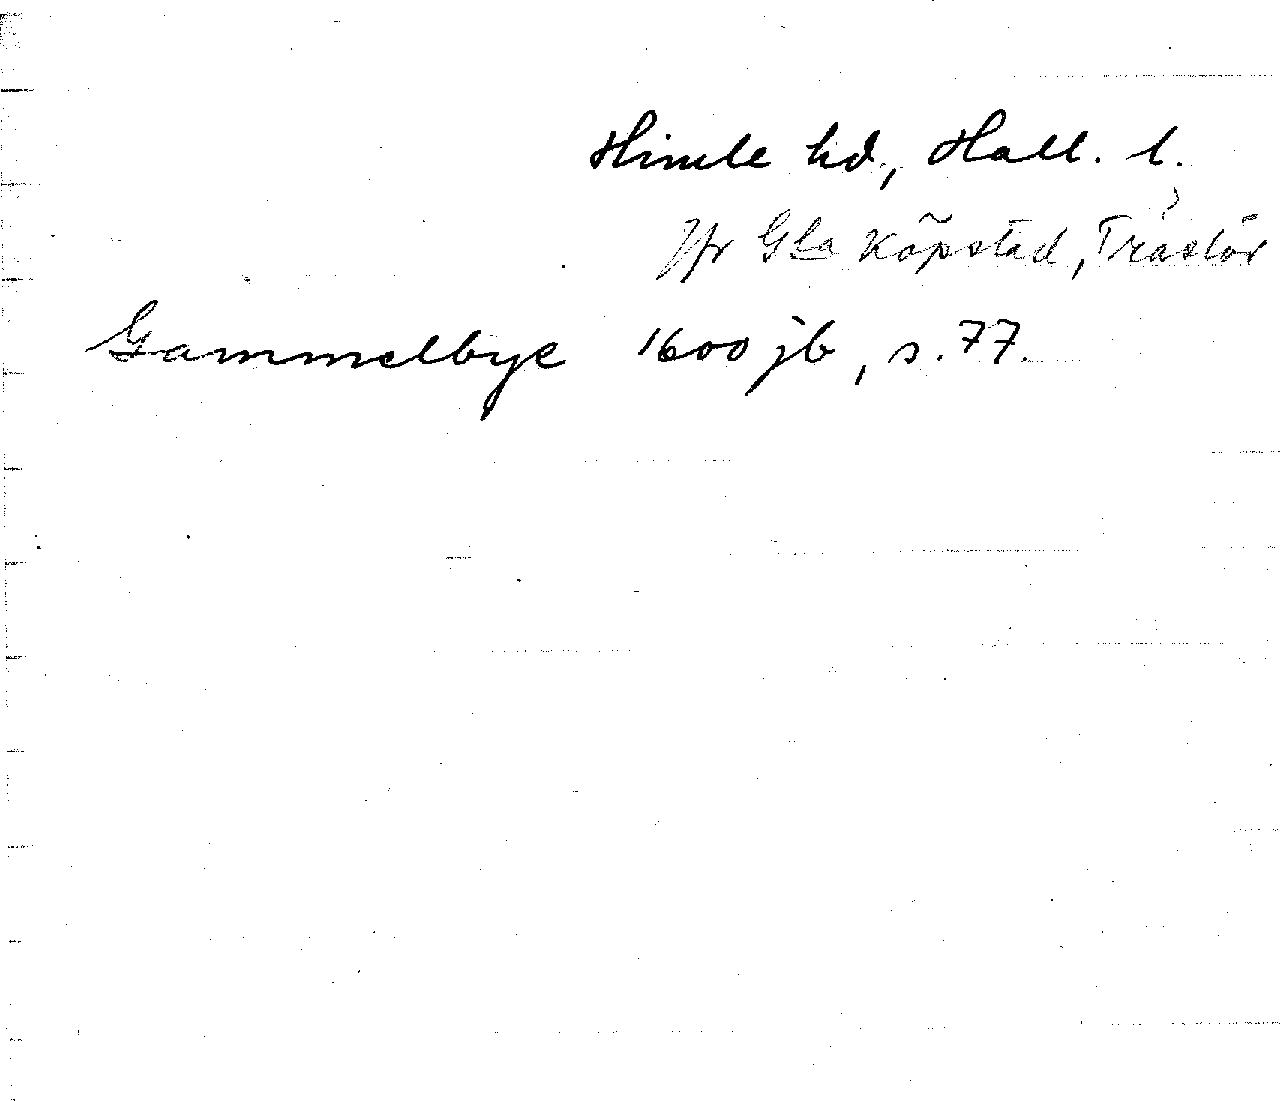 Himle hd, Hall. l.
Jfr Gla Köpstad, Träslöv
Gammelbye 1600 jb, s. 77.